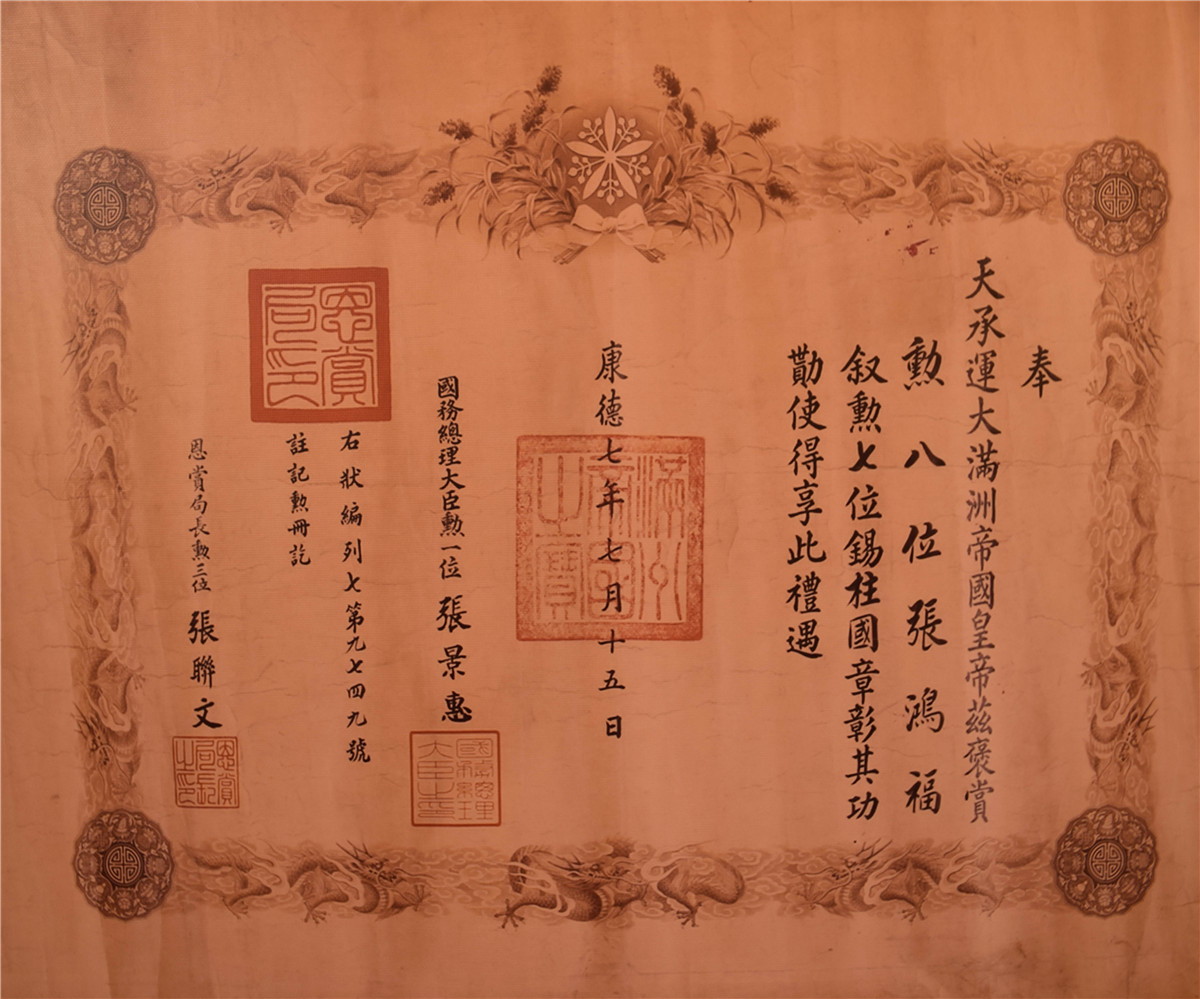 奉
天承運大滿洲帝國皇帝茲褒賞
勲八位張鴻福
叙勲七位錫柱國章彰其功
勤使得享此禮遇
康德七年七月十五日
滿洲帝國之寶
國務總理大臣勲一位張景惠
國務總理大臣之印
右狀編列七第九七四九號
註記勲冊訖
恩賞局印
恩賞局長勲三位張聯文
恩賞局長之印